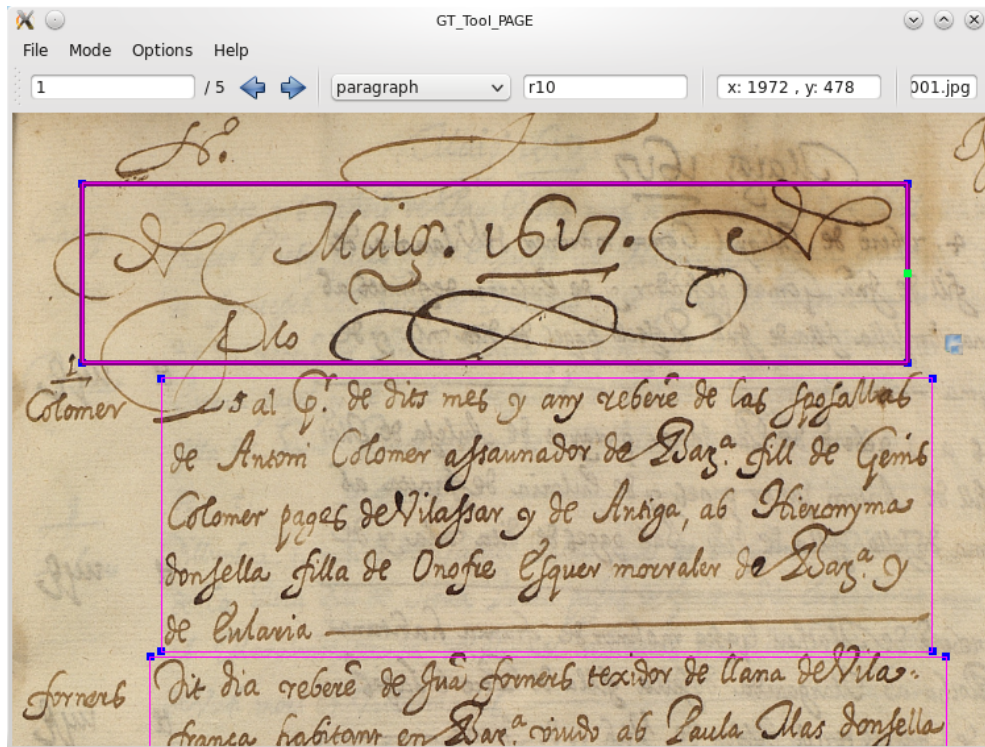 GT_Tool_PAGE
File Mode Options Help
1 / 5 paragraph r10 x: 1972 , y: 478 001.jpg
Maig. 1617.
1
Colomer
al P.r de dits mes y any reberē de las sposallas
de Antoni Colomer assaunador de Bar.ª fill de Genis
Colomer pages de Vilassar y de Antiga, ab Hieronyma
donsella filla de Onofre Esquer morraler de Bar.ª y
de Eularia
forners
Dit dia reberē de Juā forners texidor de llana de Vila-
franca habitant en Bar.ª viudo ab Paula Mas donsella